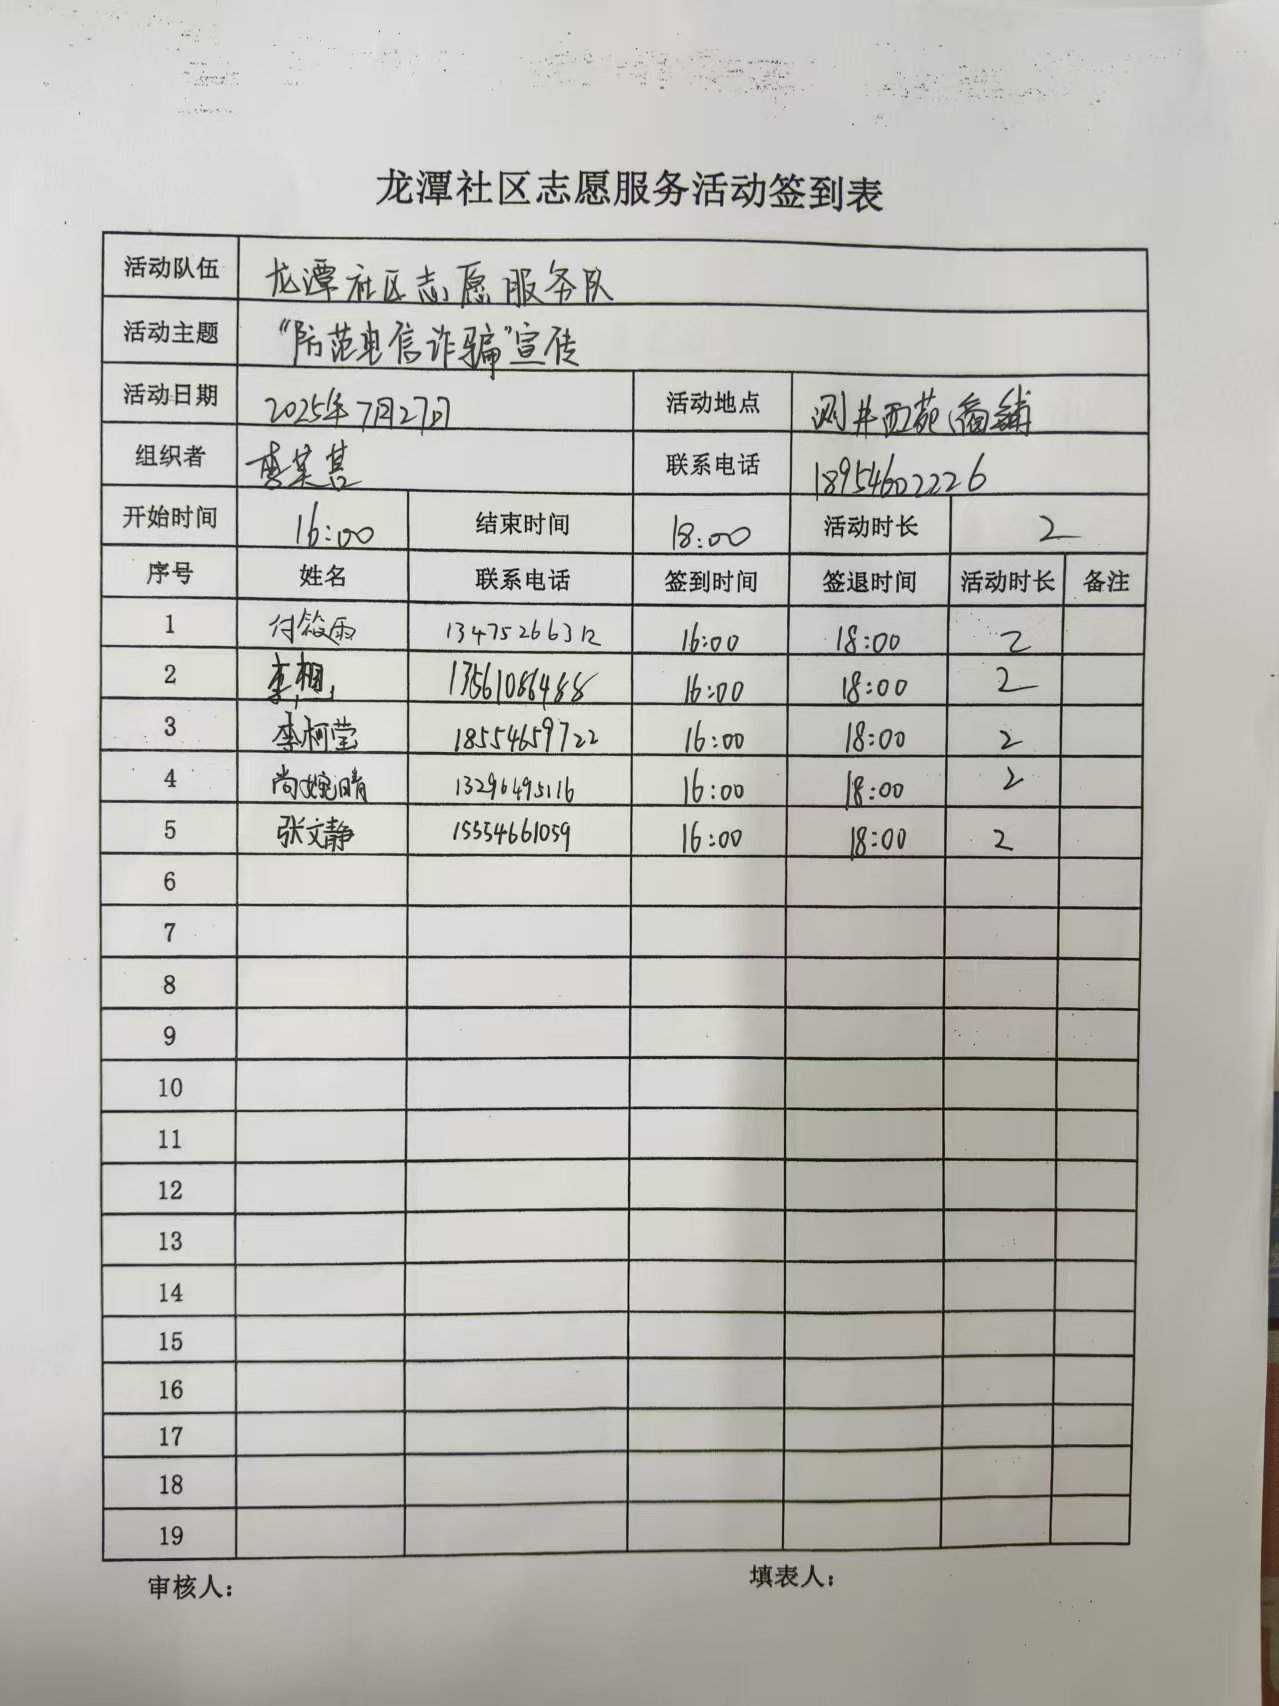 龙潭社区志愿服务活动签到表
活动队伍 龙潭社区志愿服务队
活动主题 “防范电信诈骗”宣传
活动日期 2025年7月27日 活动地点 测井西苑商铺
组织者 联系电话 18954602226
开始时间 16:00 结束时间 18:00 活动时长 2
序号 姓名 联系电话 签到时间 签退时间 活动时长 备注
1 13475266312 16:00 18:00 2
2 13561086488 16:00 18:00 2
3 李柯莹 18554659722 16:00 18:00 2
4 尚婉晴 13296495116 16:00 18:00 2
5 张文静 15554661059 16:00 18:00 2
6
7
8
9
10
11
12
13
14
15
16
17
18
19
审核人： 填表人：